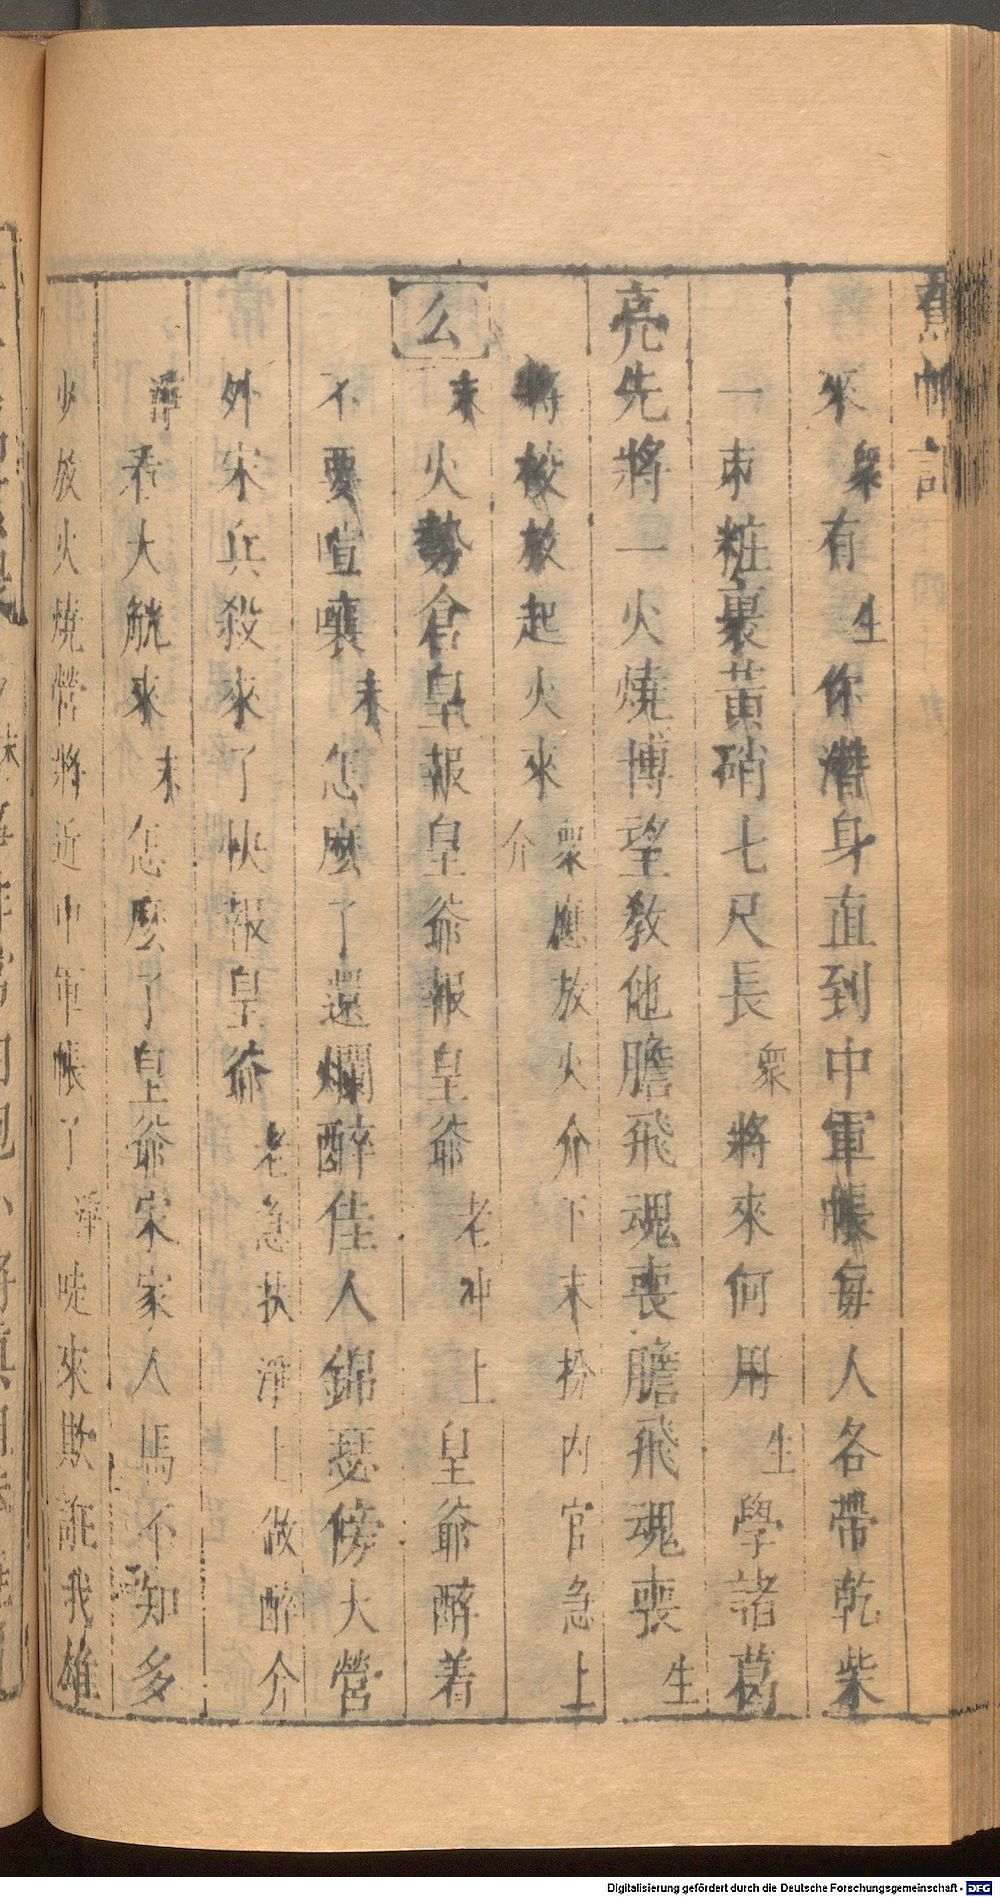 蕉帕記
來衆有生你潛身直到中軍帳每人各帶乾柴
一束粧裹黃硝七尺長衆將來何用生學諸葛
亮先將一火燒博望教他膽飛魂喪膽飛魂喪生
將校放起火來衆應放火介下末扮內官急上介
么末火勢倉皇報皇爺報皇爺老冲上皇爺醉着
不要喧嚷末怎麼了還爛醉佳人錦瑟傍大營
外宋兵殺來了快報皇爺老急扶淨上做醉介
淨看大觥來末怎麼了皇爺宋家人馬不知多
少放火燒營將近中軍帳了淨唗來欺誑我雄
Digitalisierung gefördert durch die Deutsche Forschungsgemeinschaft - DFG